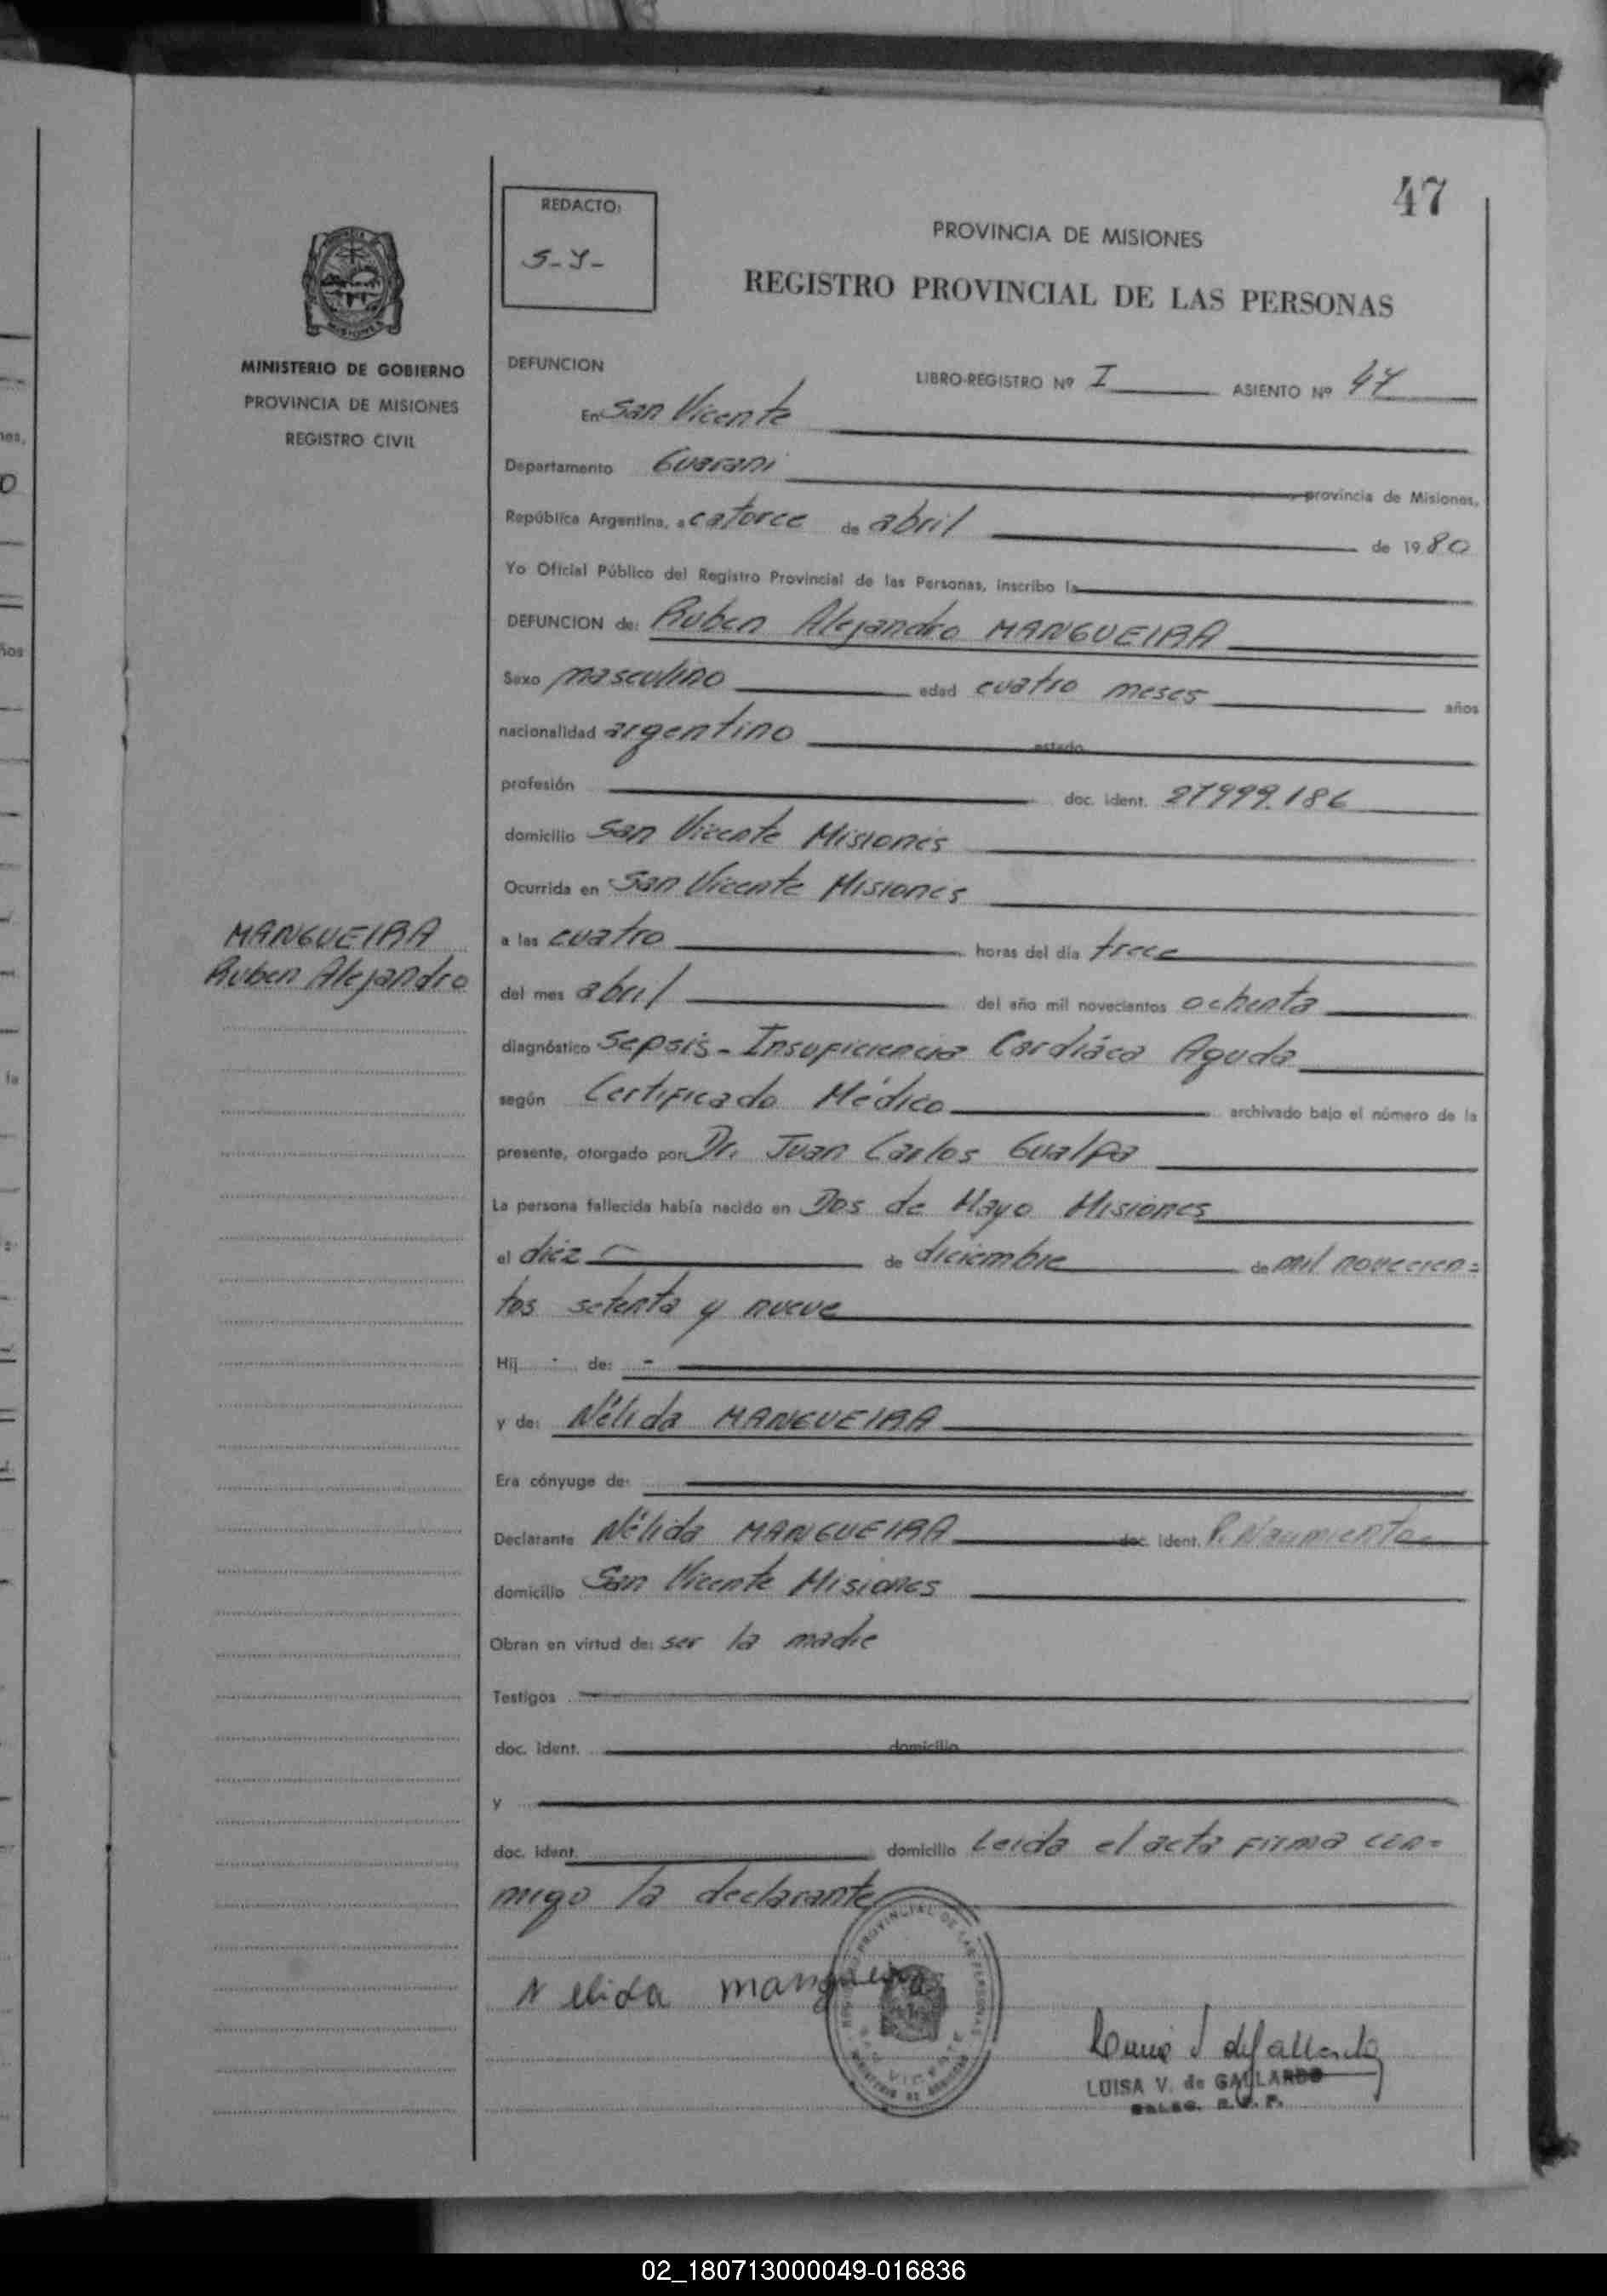 47
REDACTO:
S-Y-
PROVINCIA DE MISIONES
REGISTRO PROVINCIAL DE LAS PERSONAS
MINISTERIO DE GOBIERNO
PROVINCIA DE MISIONES
REGISTRO CIVIL
DEFUNCION
LIBRO-REGISTRO Nº I ASIENTO Nº 47
En San Vicente
Departamento Guarani provincia de Misiones,
República Argentina, a catorce de abril de 1980
Yo Oficial Público del Registro Provincial de las Personas, inscribo la
DEFUNCION de: Ruben Alejandro MANGUEIRA
Sexo masculino edad cuatro meses años
nacionalidad argentino estado
profesión doc. ident. 27999.186
domicilio San Vicente Misiones
Ocurrida en San Vicente Misiones
MANGUEIRA
Ruben Alejandro
a las cuatro horas del día trece
del mes abril del año mil novecientos ochenta
diagnóstico Sepsis - Insuficiencia Cardiáca Aguda
según Certificado Médico archivado bajo el número de la
presente, otorgado por: Dr. Juan Carlos Gualpa
La persona fallecida había nacido en Dos de Mayo Misiones
el diez de diciembre de mil novecien=
tos setenta y nueve
Hij de: -
y de: Nélida MANGUEIRA
Era cónyuge de:
Declarante Nélida MANGUEIRA doc. ident. P. Nacimiento
domicilio San Vicente Misiones
Obran en virtud de: ser la madre
Testigos
doc. ident. domicilio
y
doc. ident. domicilio Leida el acta firma con=
migo la declarante
Nelida mangueira
REGISTRO PROVINCIAL DE LAS PERSONAS
SAN VICENTE
LUISA V. de GALLARDO
02_180713000049-016836